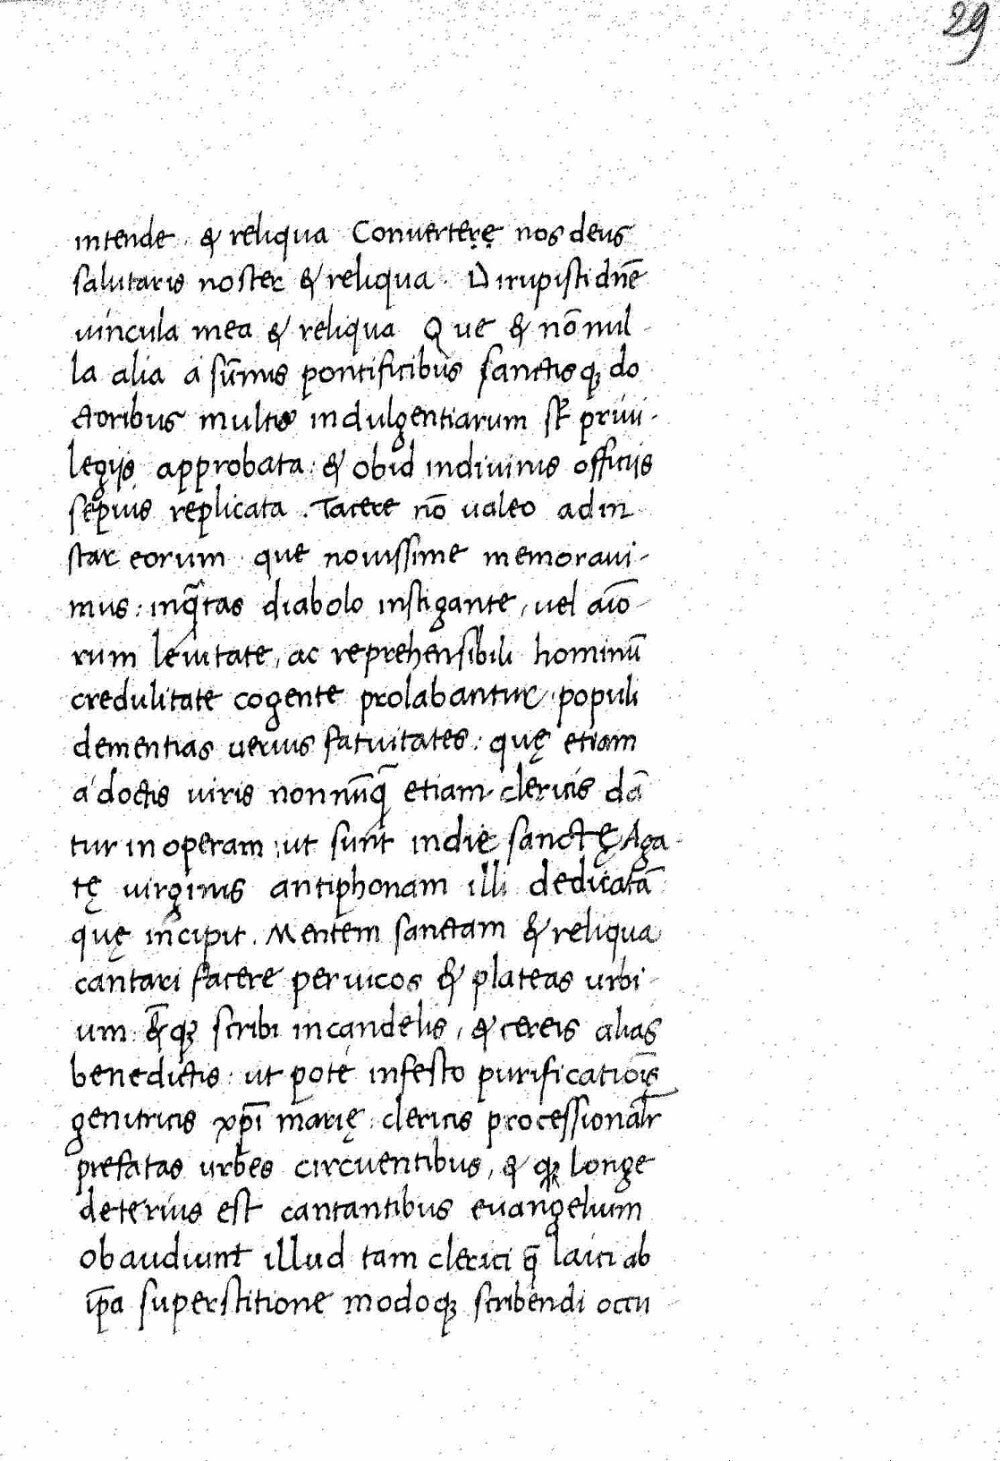 29
intende & reliqua Conuertere nos deus
salutaris noster & reliqua. Dirupisti dn̄e
uincula mea & reliqua Que & nōnul
la alia a sūmis pontificibus sanctisq; do
ctoribus multis indulgentiarum priui-
legijs approbata: & obid indiuinis officijs
sepius replicata. Tacere nō ualeo adin
star eorum que nouissime memoraui-
mus: diabolo instigante, uel aīo
rum leuitate, ac reprehensibili hominū
credulitate cogente prolabantur populi
dementias uerius fatuitates: quę etiam
a doctis uiris nonnūq̄ etiam clericis dā
tur in operam: ut sunt indie sanctę Aga
tę uirginis antiphonam illi dedicatā
quę incipit. Mentem sanctam & reliqua
cantari facere per uicos & plateas urbi
um: scribi incandelis, & cereis alias
benedictis: ut pote infesto purificatiōis
genitricis xp̄i marię: clericis processionalr̄
prefatas urbes circuentibus, & longe
deterius est cantantibus euangelium
obaudiunt illud tam clerici q̄ laici ab
ip̄a superstitione modoq; scribendi occu